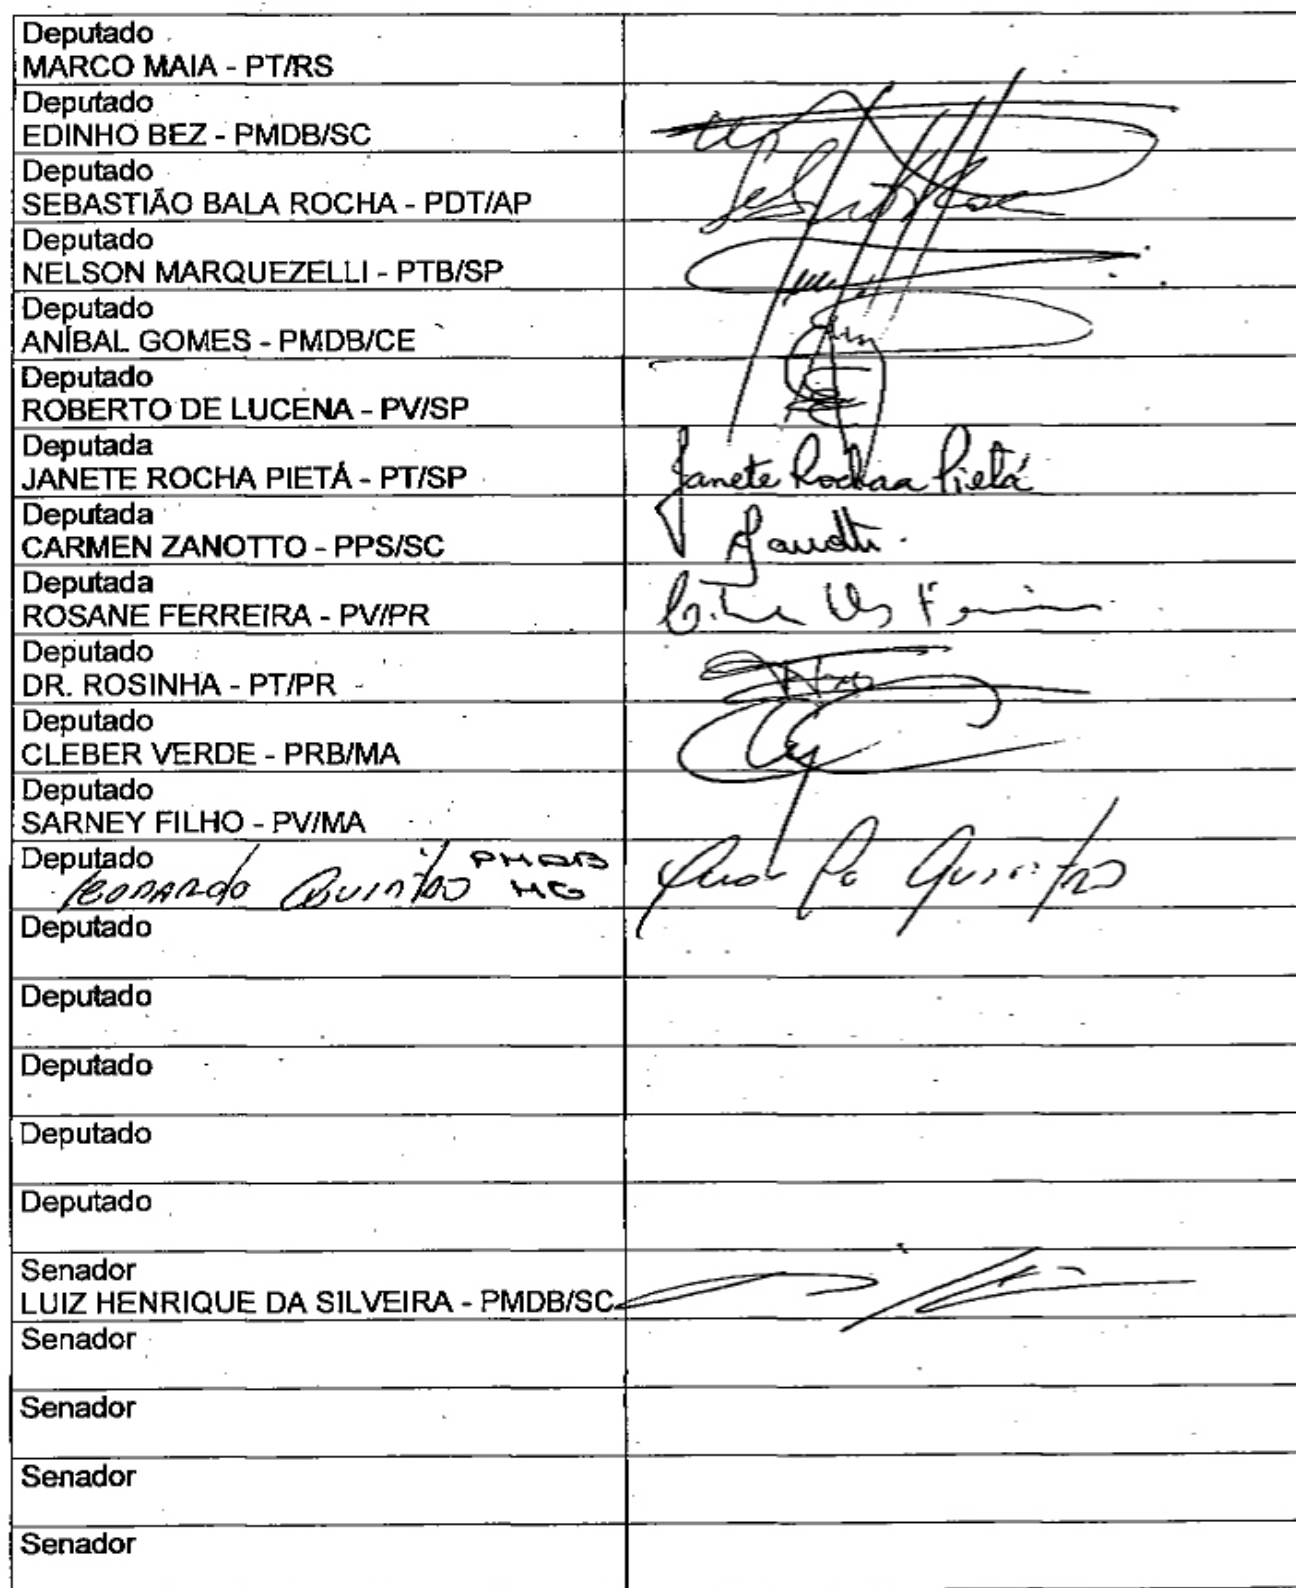 Deputado
MARCO MAIA - PT/RS
Deputado
EDINHO BEZ - PMDB/SC
Deputado
SEBASTIÃO BALA ROCHA - PDT/AP
Deputado
NELSON MARQUEZELLI - PTB/SP
Deputado
ANÍBAL GOMES - PMDB/CE
Deputado
ROBERTO DE LUCENA - PV/SP
Deputada
JANETE ROCHA PIETÁ - PT/SP
Janete Rocha Pietá
Deputada
CARMEN ZANOTTO - PPS/SC
Deputada
ROSANE FERREIRA - PV/PR
Deputado
DR. ROSINHA - PT/PR
Deputado
CLEBER VERDE - PRB/MA
Deputado
SARNEY FILHO - PV/MA
Deputado
LEONARDO QUINTÃO PMDB
MG
Deputado
Deputado
Deputado
Deputado
Deputado
Senador
LUIZ HENRIQUE DA SILVEIRA - PMDB/SC
Senador
Senador
Senador
Senador